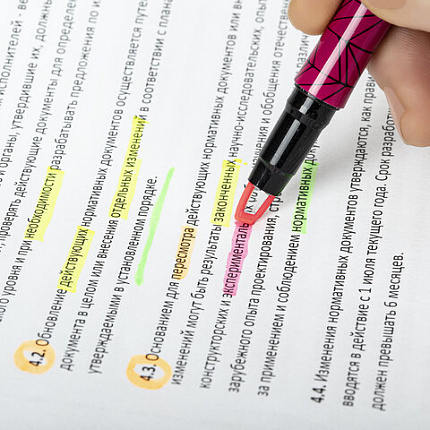 исполнителей - ве
и органы, утвердившие их, должны
проверять действующие документы для определе
уровня и при необходимости разрабатывать предложения по из
4.2. Обновление действующих нормативных документов осуществляется путе
документа в целом или внесения отдельных изменений в соответствии с плана
утверждаемыми в установленном порядке.
4.3. Основанием для пересмотра действующих нормативных документов или вн
изменений могут быть результаты законченных научно-исследовательских, опыт
конструкторских и экспериментальных
зарубежного опыта проектирования, обобщения отечестве
за применением и соблюдением нормативных
4.4. Изменения нормативных документов утверждаются, как прави
вводятся в действие с 1 июля текущего года. Срок разработ
должен превышать 6 месяцев.